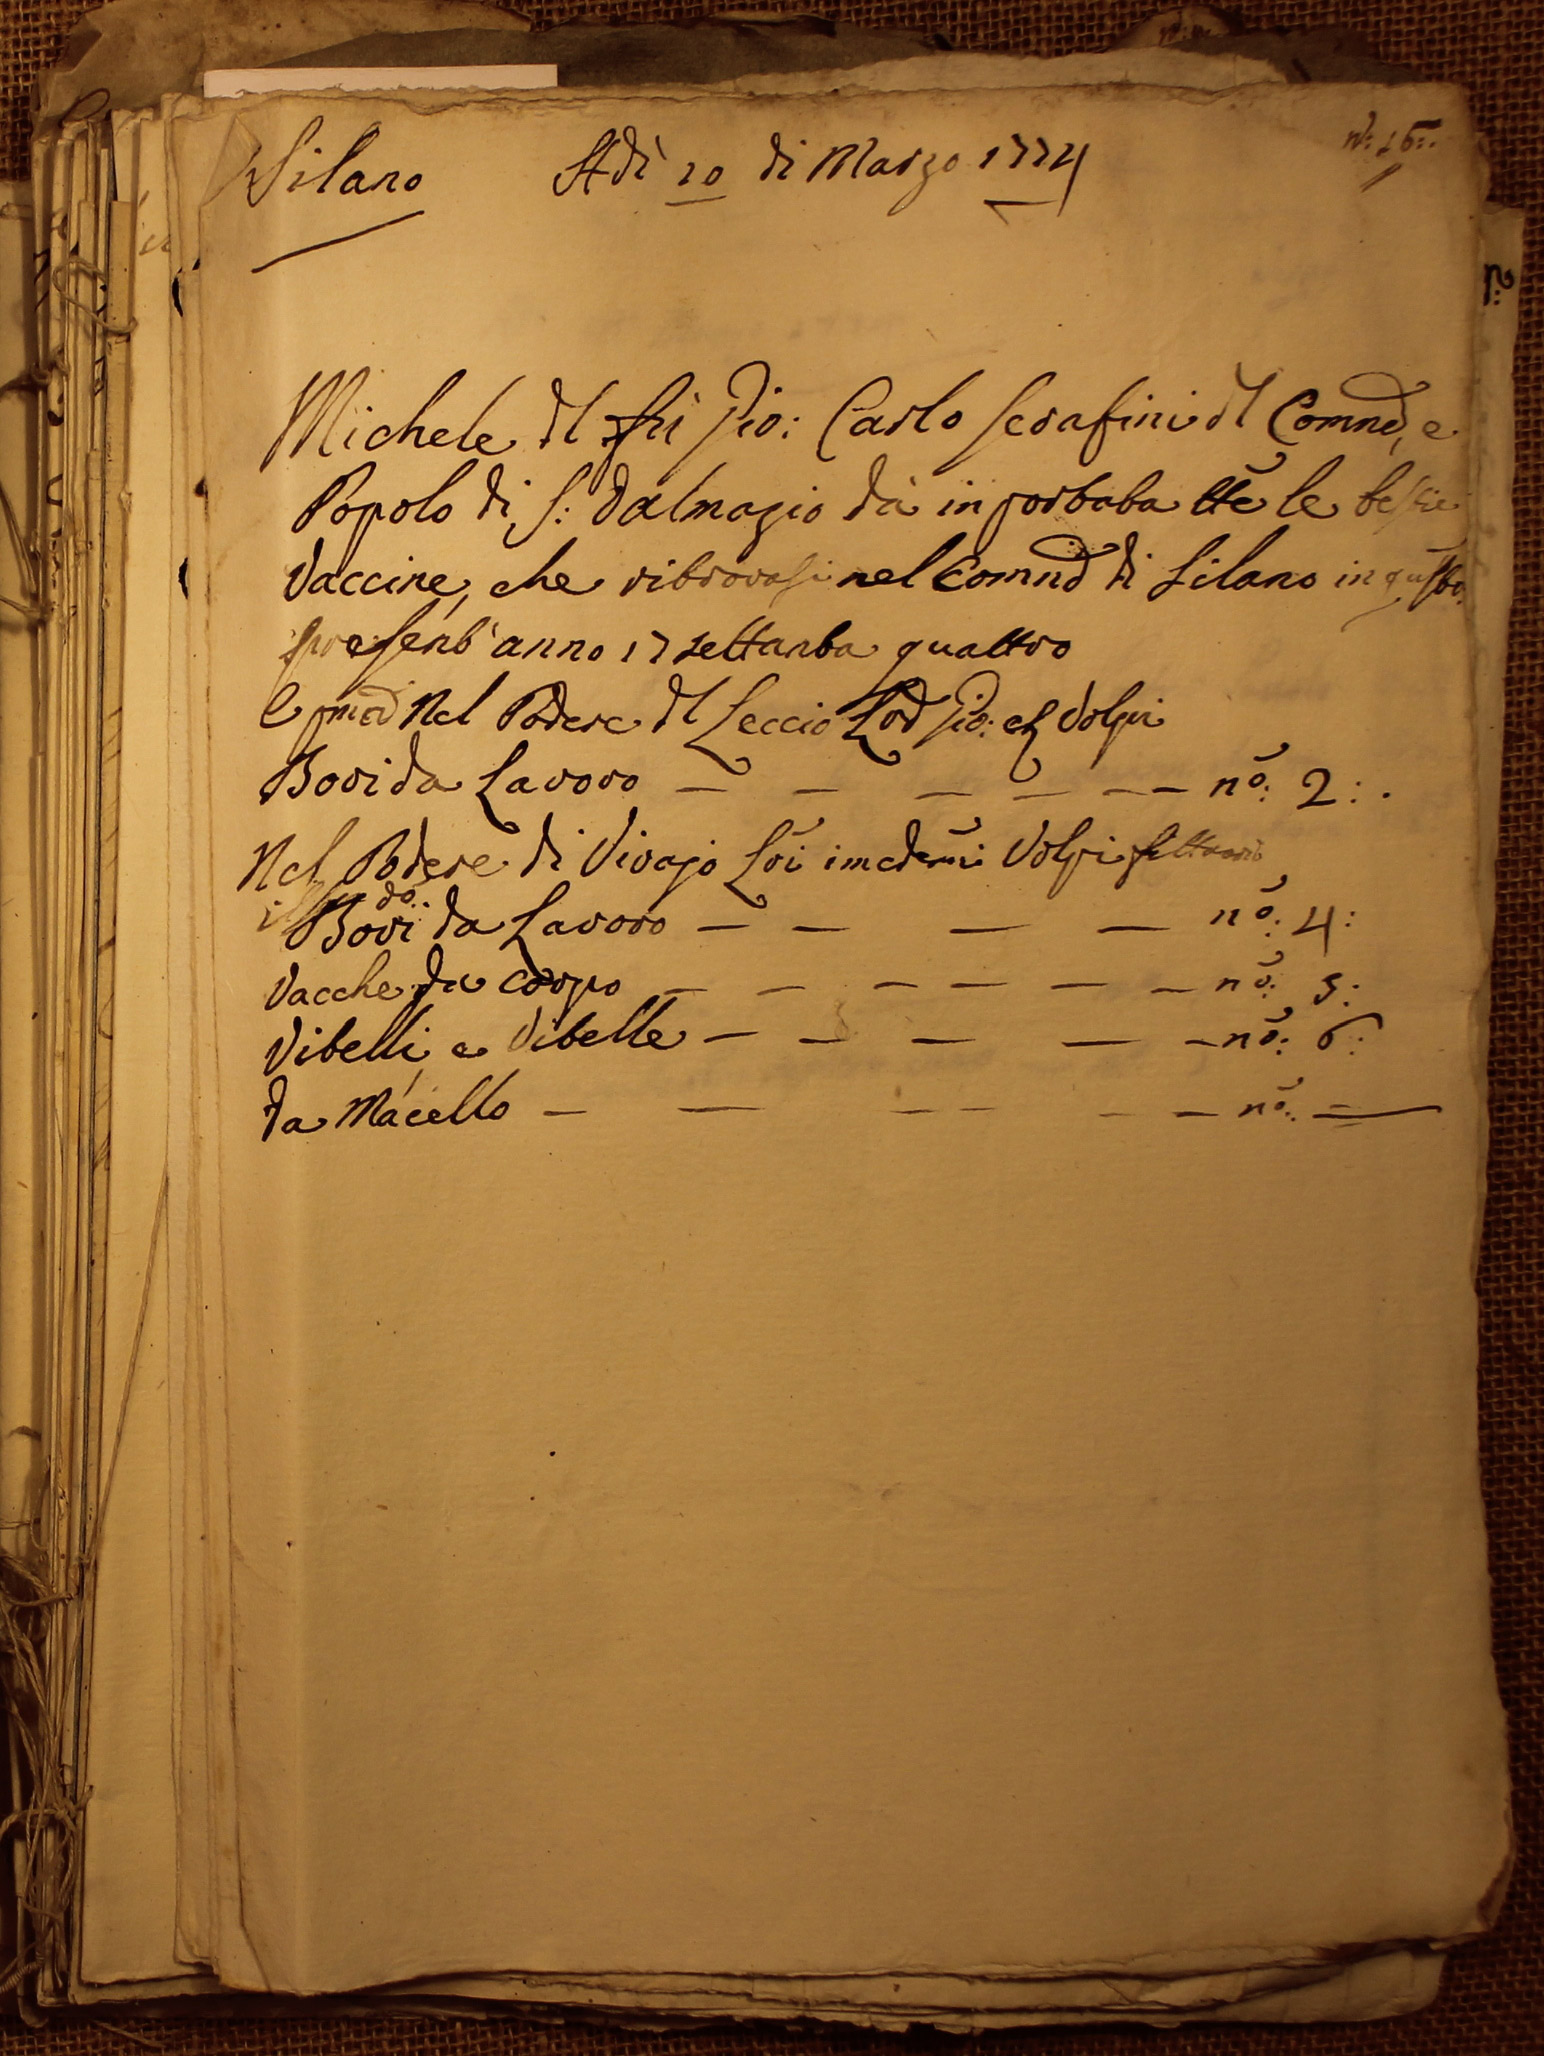 Silano Adì 20 di Marzo 1774
n: 16:.
n:
Michele dl fù Gio: Carlo Serafini dl Comnè, e
Popolo di S: dalmazio dà in portata tte le bestie
Vaccine, che ritrovasi nel Comnè di Silano in qusto
present' anno 17 settanta quattro
E Nel Podere dl Leccio Gio: Volpi
Bovi da Lavoro — — — — — — no: 2:.
Nel Podere di Vivajo Volpi
do:
Bovi da Lavoro — — — — no: 4:
Vacche da corpo — — — — — — no: 5:
Vitelli, e Vitelle — — — — — no: 6:
da Macello — — — — — — no: —